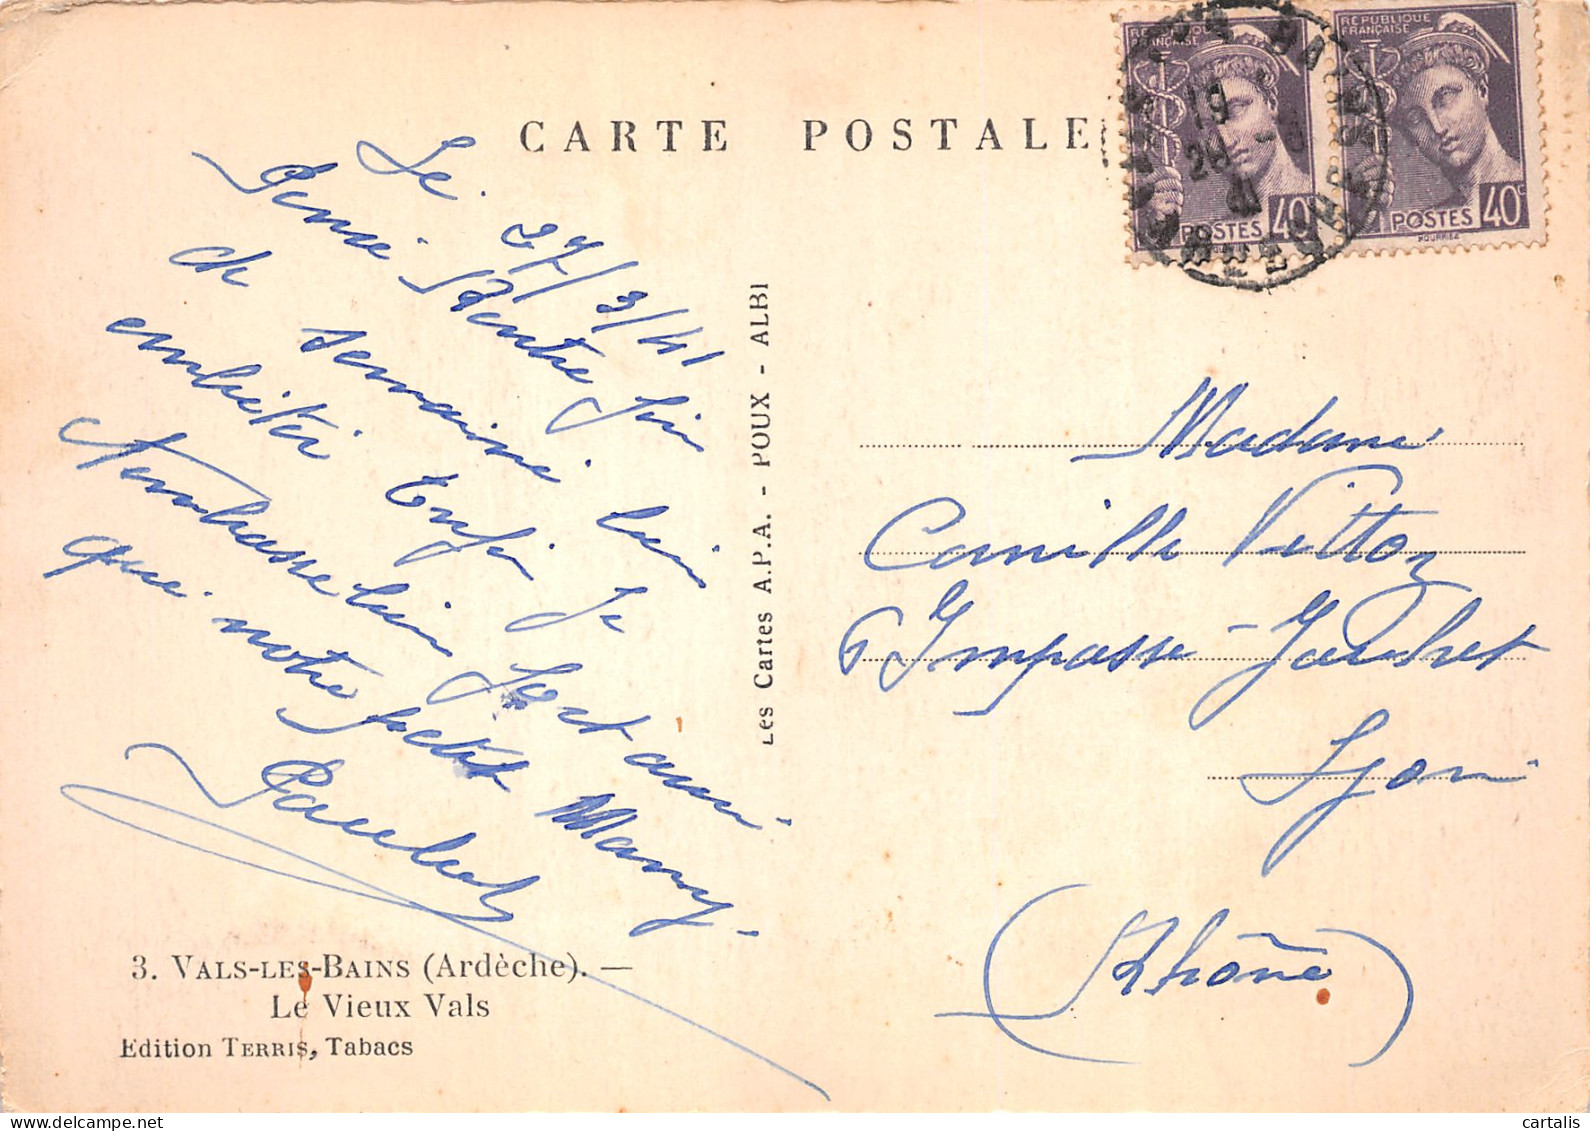 CARTE POSTALE
RÉPUBLIQUE
FRANÇAISE
POSTES 40c
RÉPUBLIQUE
FRANÇAISE
POSTES 40c
19
28
41
ARDECHE
Le 27/3/41
Pense Rentre fin
de semaine bien
embêté Enfin je
t'embrasse bien fort ainsi
que notre petit Mamy.
Paulet
Les Cartes A.P.A. - POUX - ALBI
Madame
Camille Vitton
6 Impasse-Gauchet
Lyon
(Rhône)
3. VALS-LES-BAINS (Ardèche). —
Le Vieux Vals
Edition TERRIS, Tabacs
cartalis
www.delcampe.net